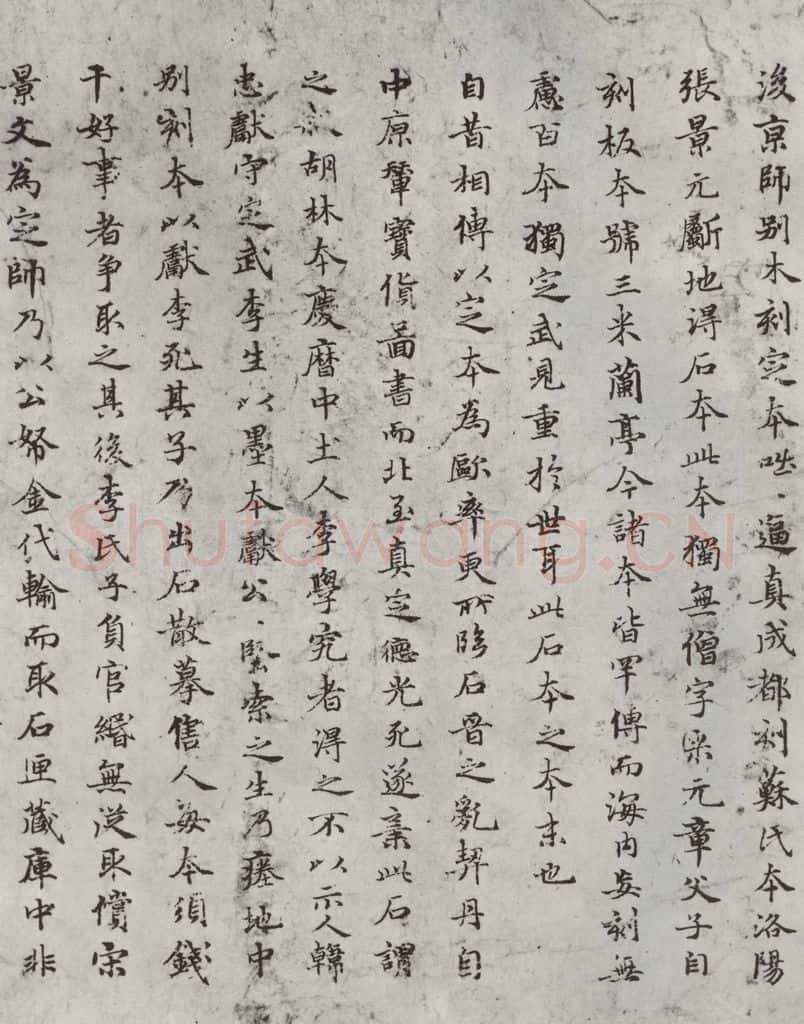 後京師別木刻定本咄、逼真成都刻蘇氏本洛陽
張景元斸地得石本此本獨無僧字米元章父子自
刻板本號三米蘭亭今諸本皆罕傳而海内妄刻無
慮百本獨定武見重於世耳此石本之本末也
自昔相傳以定本為歐率更所臨石晉之亂契丹自
中原輦寶貨圖書而北至真定德光死遂棄此石謂
之殺胡林本慶曆中士人李學究者得之不以示人韓
忠獻守定武李生以墨本獻公、堅索之生乃瘞地中
别刻本以獻李死其子乃出石散摹售人每本須錢
千好事者争取之其後李氏子負官緡無從取償宋
景文為定帥乃以公帑金代輸而取石匣藏庫中非
Shufawang.CN